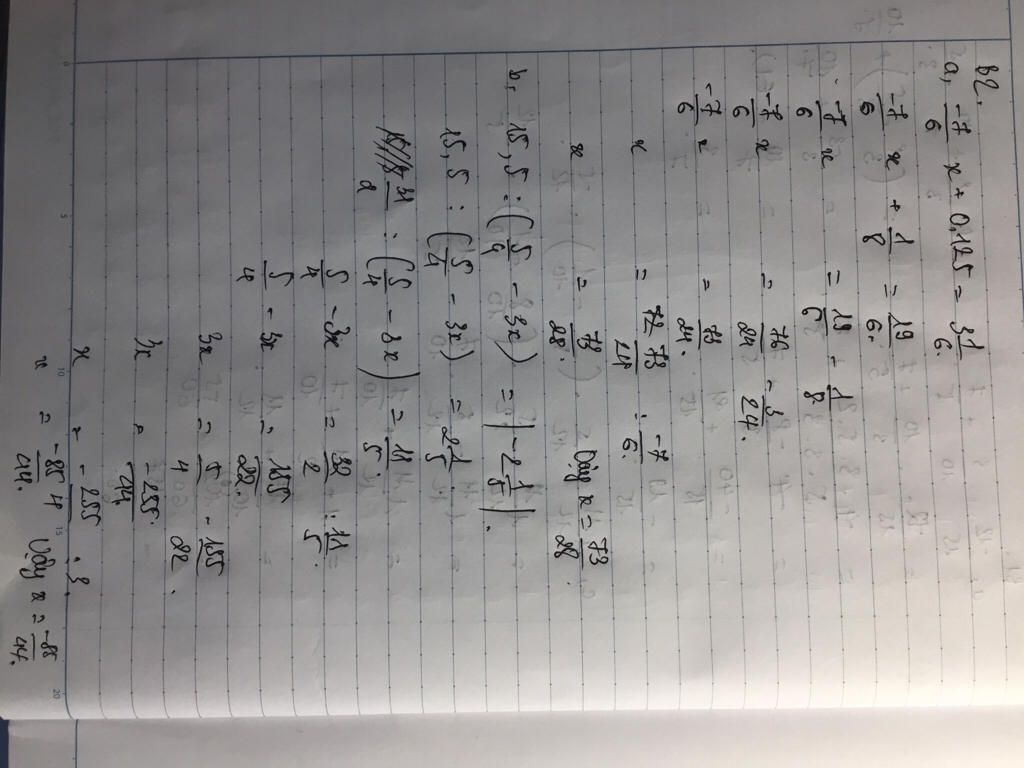 B2.
a, -7/6 x + 0,125 = 3 1/6.
-7/6 x + 1/8 = 19/6.
-7/6 x = 19/6 - 1/8
-7/6 x = 76/24 - 3/24.
-7/6 x = 73/24.
x = 73/24 : -7/6.
x = 73/28. Vậy x = 73/28.
b, 15,5 : (5/4 - 3x) = |-2 1/5|.
15,5 : (5/4 - 3x) = 2 1/5
31/2 : (5/4 - 3x) = 11/5.
5/4 - 3x = 32/2 : 11/5 =
5/4 - 3x = 155/22.
3x = 5/4 - 155/22.
3x = -255/44.
x = -255/44 : 3.
x = -85/44. Vậy x = -85/44.
0
5
10
15
20